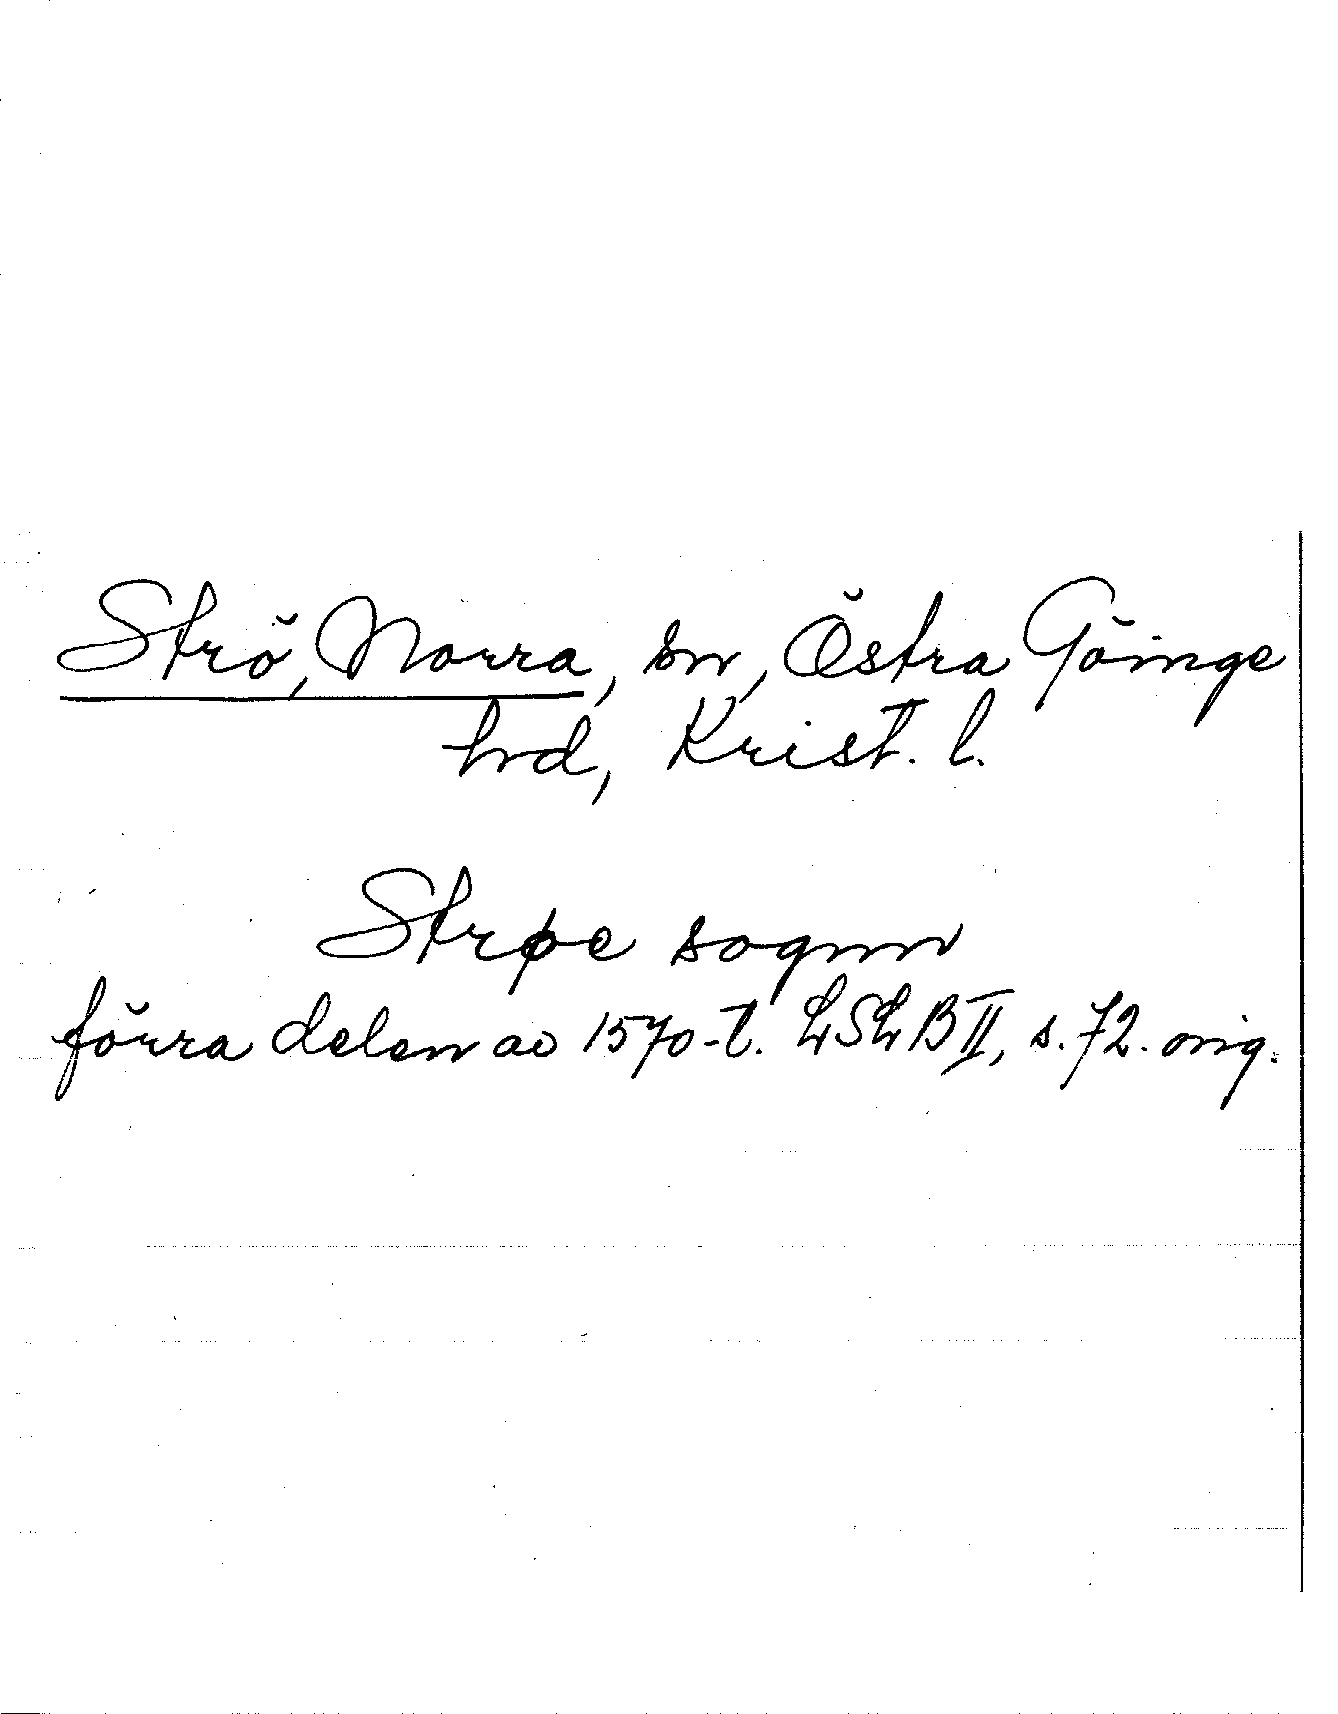 Strö, Norra, sn, Östra Göinge
hrd, Krist. l.
Strøe sognn
förra delen av 1570-t. LSLB II, s. 72. orig.